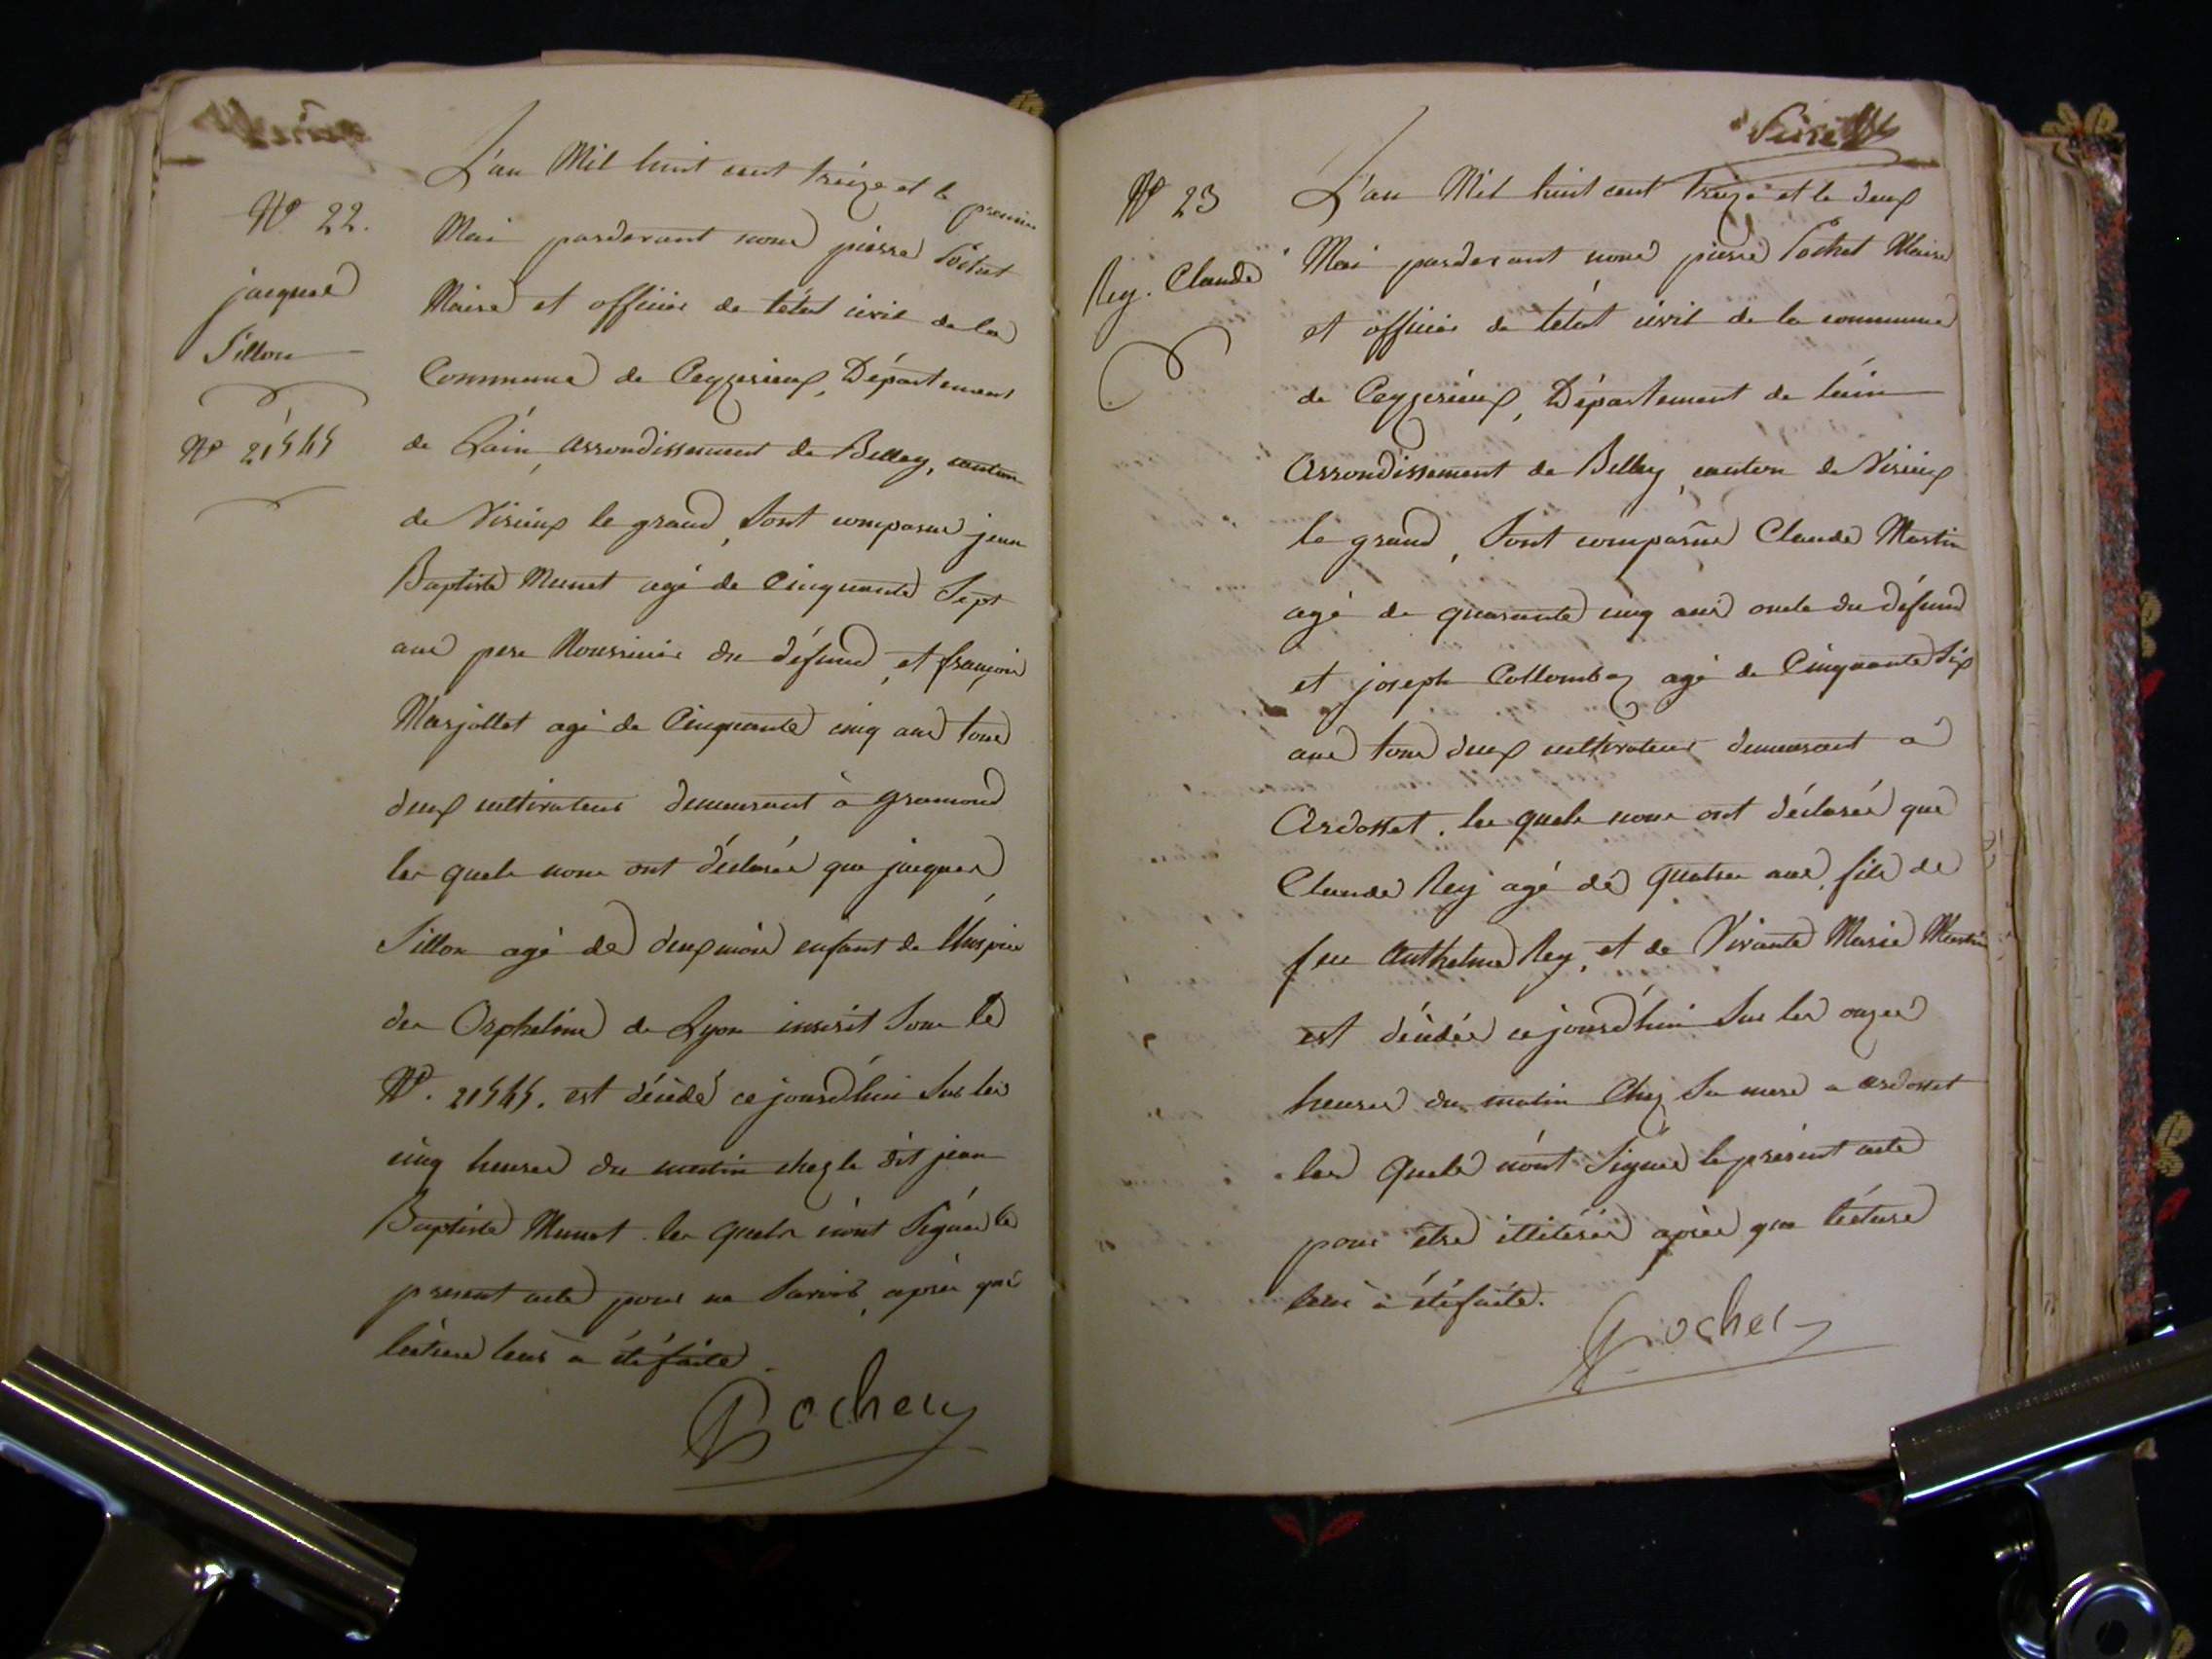 N° 22.
jacques
Sillon
N° 21545
L'an Mil huit cent treize et le premier
Mai pardevant nous pierre Pochet
Maire et officier de l'état civil de la
Commune de Ceyzerieux, Département
de Lain, arrondissement de Belley, canton
de Virieux le grand, Sont comparus jean
Baptiste Munet agé de Cinquante Sept
ans pere Nourricier du défund, et françois
Marjollet agé de Cinquante cinq ans tous
deux cultivateurs demeurant à gramond
les quels nous ont déclarés que jacques
Sillon agé de deux mois enfant de l'hospice
des Orphelins de Lyon inscrit Sous le
N°. 21545. est décédé cejourd'hui Sur les
cinq heures du matin chez le dit jean
Baptiste Munet les quels n'ont Signés le
present acte pour ne Savoir, après que
lécture leurs a été faite.
Pochet
N° 23
Rey. Claude
L'an Mil huit cent Treize et le deux
Mai pardevant nous pierre Pochet Maire
et officier de l'état civil de la commune
de Ceyzerieux, Département de l'ain
Arrondissement de Belley, canton de Virieux
le grand, Sont comparus Claude Martin
agé de quarante cinq ans oncle du défund
et joseph Collomb agé de Cinquante Six
ans tous deux cultivateurs demeurant à
Ardosset. les quels nous ont déclarés que
Claude Rey agé de quatre ans, fils de
feu Anthelme Rey, et de Vivante Marie Martin
est décédés cejourd'hui Sur les onzes
heures du matin Chez Sa mere a ardosset
les quels n'ont Signés le présent acte
pour être illitérés après que lécture
leurs à été faite.
Pochet